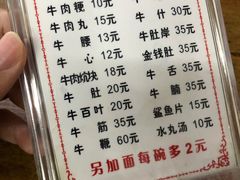 牛肉粳 10元
牛肉丸 15元 牛什 30元
牛腰 13元 牛肚岸 35元
牛心 12元 金钱肚 35元
牛肉焰块 18元 牛舌 35元
牛肚 20元 牛腩 35元
牛百叶 20元 鲨鱼片 15元
牛筋 35元 水丸汤 10元
牛鞭 60元
另加面每碗多2元